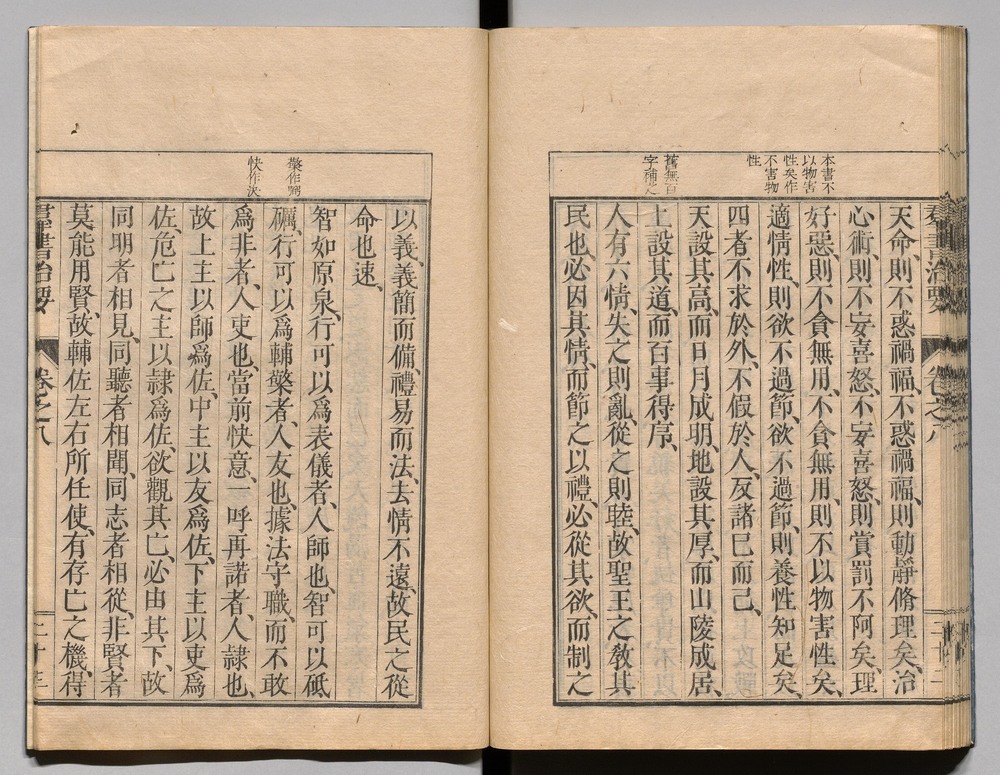 本書不
以物害
性矣作
不害物
性
舊無百
字補之
羣書治要
卷之八
天命、則不惑禍福、不惑禍福、則動靜脩理矣、治
心術、則不妄喜怒、不妄喜怒、則賞罰不阿矣、理
好惡、則不貪無用、不貪無用、則不以物害性矣、
適情性、則欲不過節、欲不過節、則養性知足矣、
四者不求於外、不假於人、反諸己而已、
天設其高、而日月成明、地設其厚、而山陵成居、
上設其道、而百事得序、
人有六情、失之則亂、從之則睦、故聖王之教其
民也、必因其情、而節之以禮、必從其欲、而制之
檠作
快作决
以義、義簡而備、禮易而法、去情不遠、故民之從
命也速、
智如原泉、行可以爲表儀者、人師也、智可以砥
礪、行可以爲輔檠者、人友也、據法守職、而不敢
爲非者、人吏也、當前快意、一呼再諾者、人隸也、
故上主以師爲佐、中主以友爲佐、下主以吏爲
佐、危亡之主以隸爲佐、欲觀其亡、必由其下、故
同明者相見、同聽者相聞、同志者相從、非賢者
莫能用賢、故輔佐左右所任使、有存亡之機、得
羣書治要
卷之八
二十三